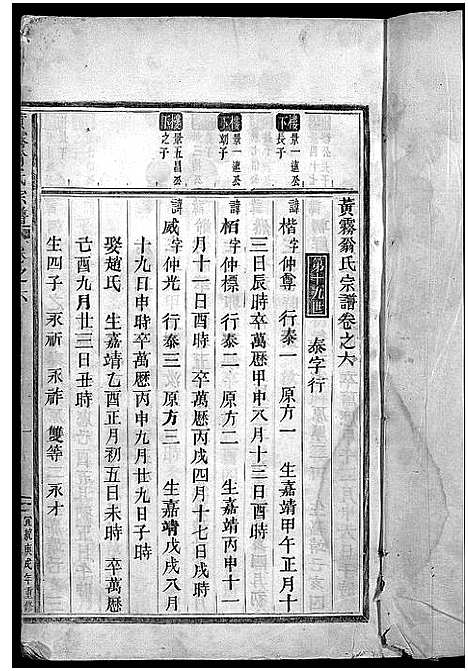 黃霧翁氏宗譜卷之六
第十九世 泰字行
樓下 景一遠公長子
諱楷 字仲尊 行泰一 原方一 生嘉靖甲午正月十
三日辰時卒萬歷甲申八月十三日酉時
樓下 景一遠公幼子
諱栢 字仲標 行泰二 原方二 生嘉靖丙申十一
月十一日酉時 卒萬歷丙戌四月十七日戌時
樓下 景五昌公之子
諱威 字仲光 行泰三 原方三 生嘉靖戊戌八月
十九日申時卒萬歷丙申九月廿九日子時
娶趙氏 生嘉靖乙酉正月初五日未時 卒萬歷
己酉九月廿三日丑時
生四子 永祈 永祚 雙等 永才
宣統庚戌年重修